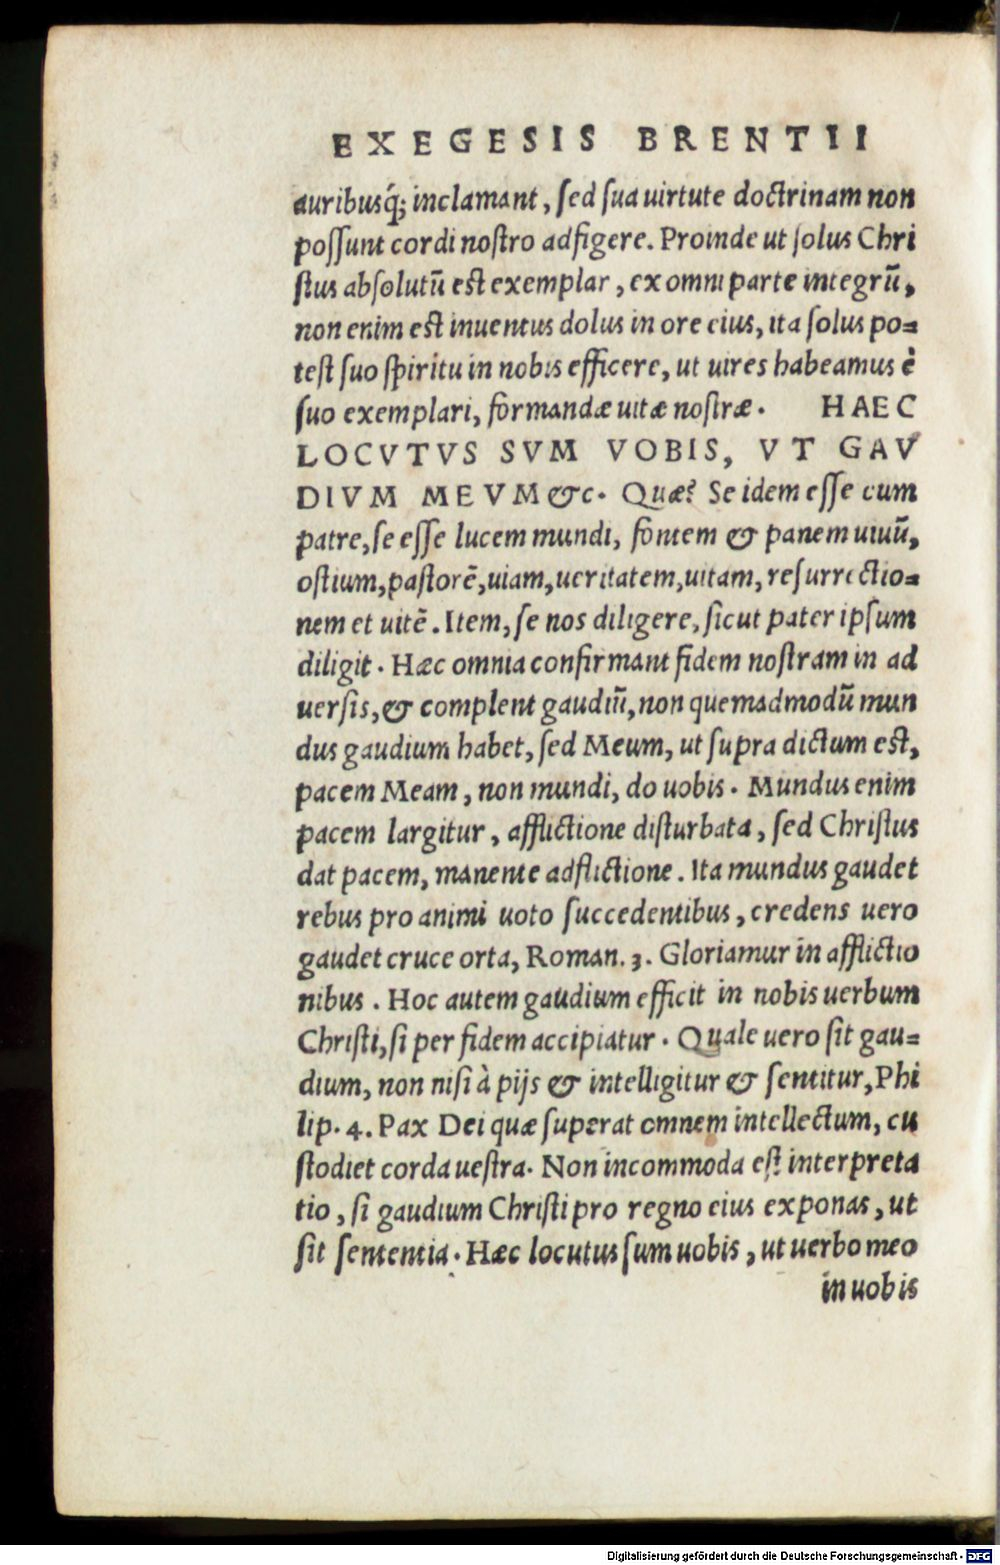 EXEGESIS BRENTII
auribusq́; inclamant, ſed ſua uirtute doctrinam non
poſſunt cordi noſtro adfigere. Proinde ut ſolus Chri
ſtus abſolutũ eſt exemplar, ex omni parte integrũ,
non enim eſt inuentus dolus in ore eius, ita ſolus po=
teſt ſuo ſpiritu in nobis efficere, ut uires habeamus è
ſuo exemplari, formandæ uitæ noſtræ. HAEC
LOCVTVS SVM VOBIS, VT GAV
DIVM MEVM &c. Quæ? Se idem eſſe cum
patre, ſe eſſe lucem mundi, fontem & panem uiuũ,
oſtium, paſtorẽ, uiam, ueritatem, uitam, reſurrectio=
nem et uitẽ. Item, ſe nos diligere, ſicut pater ipſum
diligit. Hæc omnia confirmant fidem noſtram in ad
uerſis, & complent gaudiũ, non quemadmodũ mun
dus gaudium habet, ſed Meum, ut ſupra dictum eſt,
pacem Meam, non mundi, do uobis. Mundus enim
pacem largitur, afflictione diſturbata, ſed Chriſtus
dat pacem, manente adflictione. Ita mundus gaudet
rebus pro animi uoto ſuccedentibus, credens uero
gaudet cruce orta, Roman. 3. Gloriamur in afflictio
nibus. Hoc autem gaudium efficit in nobis uerbum
Chriſti, ſi per fidem accipiatur. Quale uero ſit gau=
dium, non niſi à pijs & intelligitur & ſentitur, Phi
lip. 4. Pax Dei quæ ſuperat omnem intellectum, cu
ſtodiet corda ueſtra. Non incommoda eſt interpreta
tio, ſi gaudium Chriſti pro regno eius exponas, ut
ſit ſententia. Hæc locutus ſum uobis, ut uerbo meo
in uobis
Digitalisierung gefördert durch die Deutsche Forschungsgemeinschaft - DFG